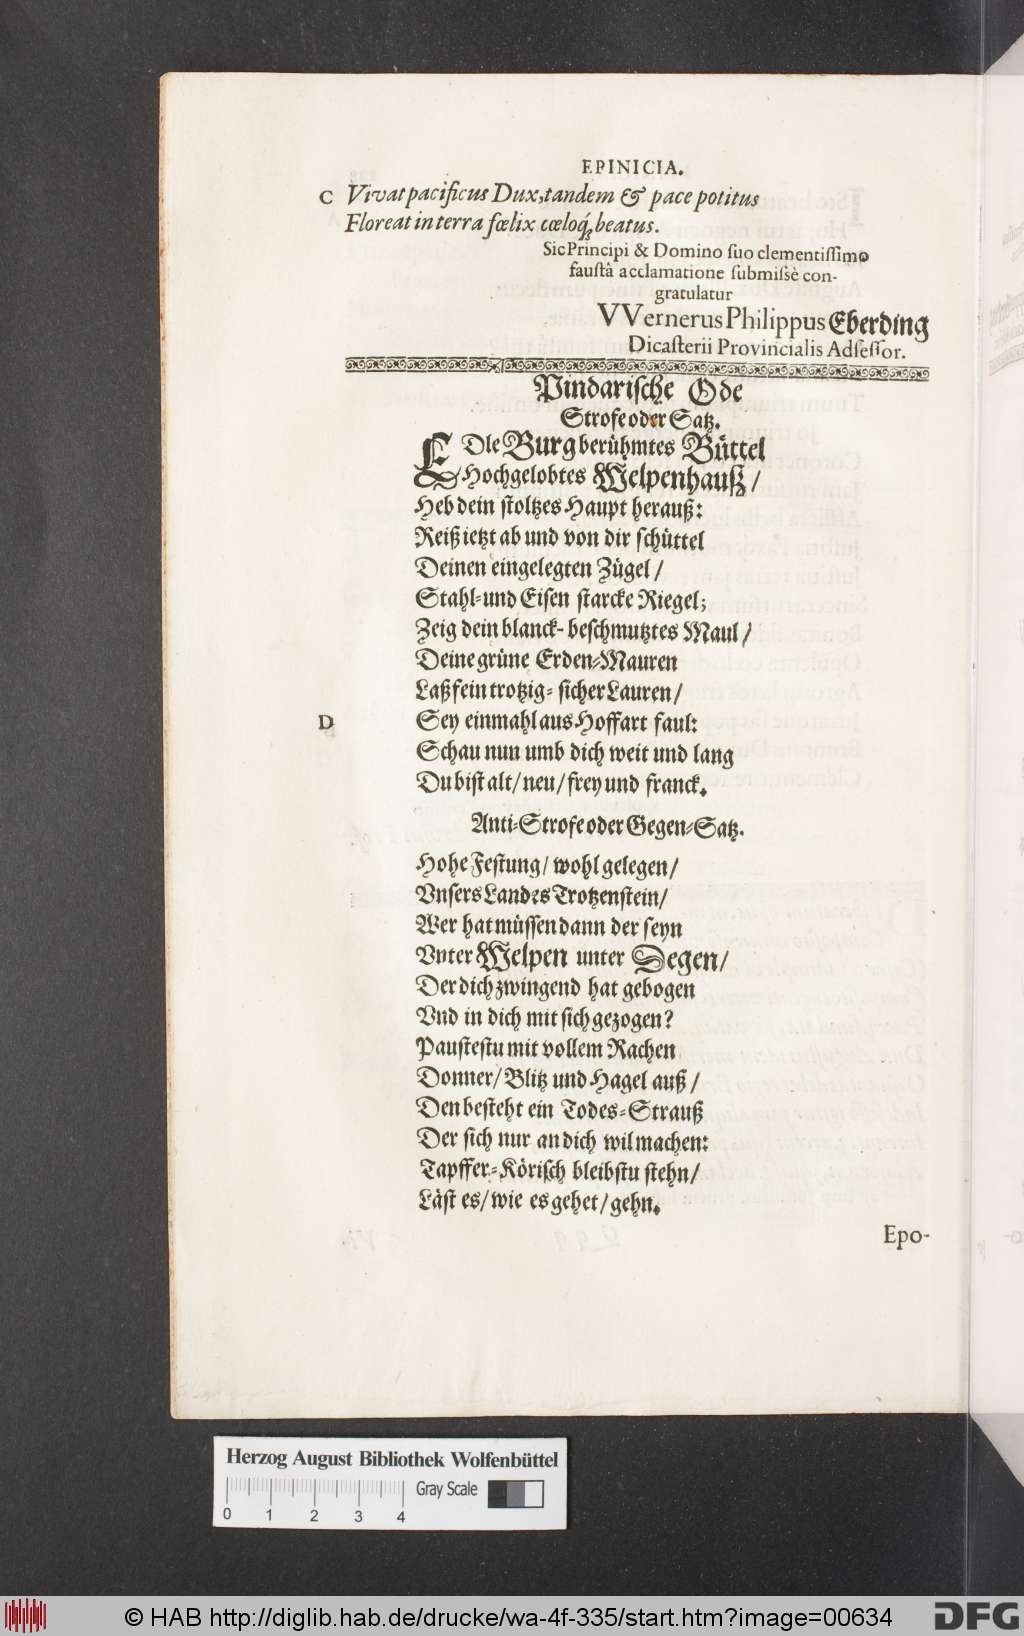 EPINICIA.
C Vivat pacificus Dux, tandem & pace potitus
Floreat in terra fœlix cœloq́; beatus.
Sic Principi & Domino suo clementissimo
faustâ acclamatione submissè con-
gratulatur
VVernerus Philippus Eberding
Dicasterii Provincialis Adsessor.
Pindarische Ode
Strofe oder Satz.
EDle Burg berühmtes Büttel
Hochgelobtes Welpenhauß /
Heb dein stoltzes Haupt herauß:
Reiß ietzt ab und von dir schüttel
Deinen eingelegten Zügel /
Stahl- und Eisen starcke Riegel;
Zeig dein blanck- beschmutztes Maul /
Deine grüne Erden-Mauren
Laß fein trotzig- sicher Lauren /
D Sey einmahl aus Hoffart faul:
Schau nun umb dich weit und lang
Du bist alt / neu / frey und franck.
Anti-Strofe oder Gegen-Satz.
Hohe Festung / wohl gelegen /
Vnsers Landes Trotzenstein /
Wer hat müssen dann der seyn
Vnter Welpen unter Degen /
Der dich zwingend hat gebogen
Vnd in dich mit sich gezogen?
Paustestu mit vollem Rachen
Donner / Blitz und Hagel auß /
Den besteht ein Todes-Strauß
Der sich nur an dich wil machen:
Tapffer-Körisch bleibstu stehn /
Läst es / wie es gehet / gehn.
Epo-
Herzog August Bibliothek Wolfenbüttel
Gray Scale
0 1 2 3 4
© HAB http://diglib.hab.de/drucke/wa-4f-335/start.htm?image=00634
DFG